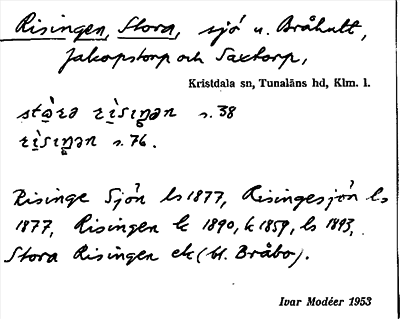 Risingen, Stora, sjö u. Bråhult,
Jakopstorp och Saxtorp,
Kristdala sn, Tunaläns hd, Klm. l.
stɷ̀rə rìsiŋən s. 38
rìsiŋən s. 76.
Risinge Sjön ls 1877, Risingesjön ls
1877, Risingen k 1890, k 1859, ls 1893,
Stora Risingen ek (bl. Bråbo).
Ivar Modéer 1953